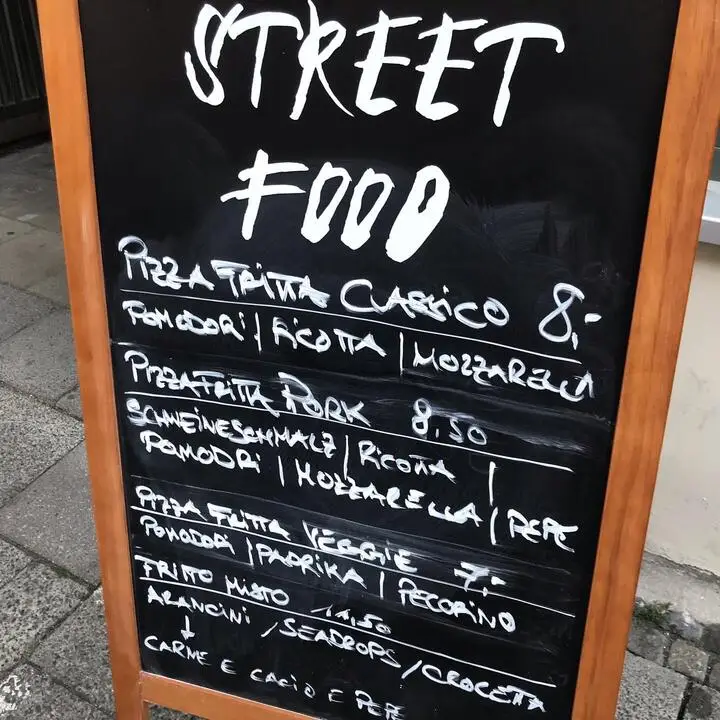 STREET
FOOD
PIZZA FRITTA CLASSICO 8,-
POMODORI | RICOTTA | MOZZARELLA
PIZZA FRITTA PORK 8,50
SCHWEINESCHMALZ | RICOTTA |
POMODORI | MOZZARELLA | PEPE
PIZZA FRITTA VEGGIE 7,-
POMODORI | PAPRIKA | PECORINO
FRITTO MISTO 11,50
ARANCINI / SEADROPS / CROCETTA
↓
CARNE E CACIO E PEPE